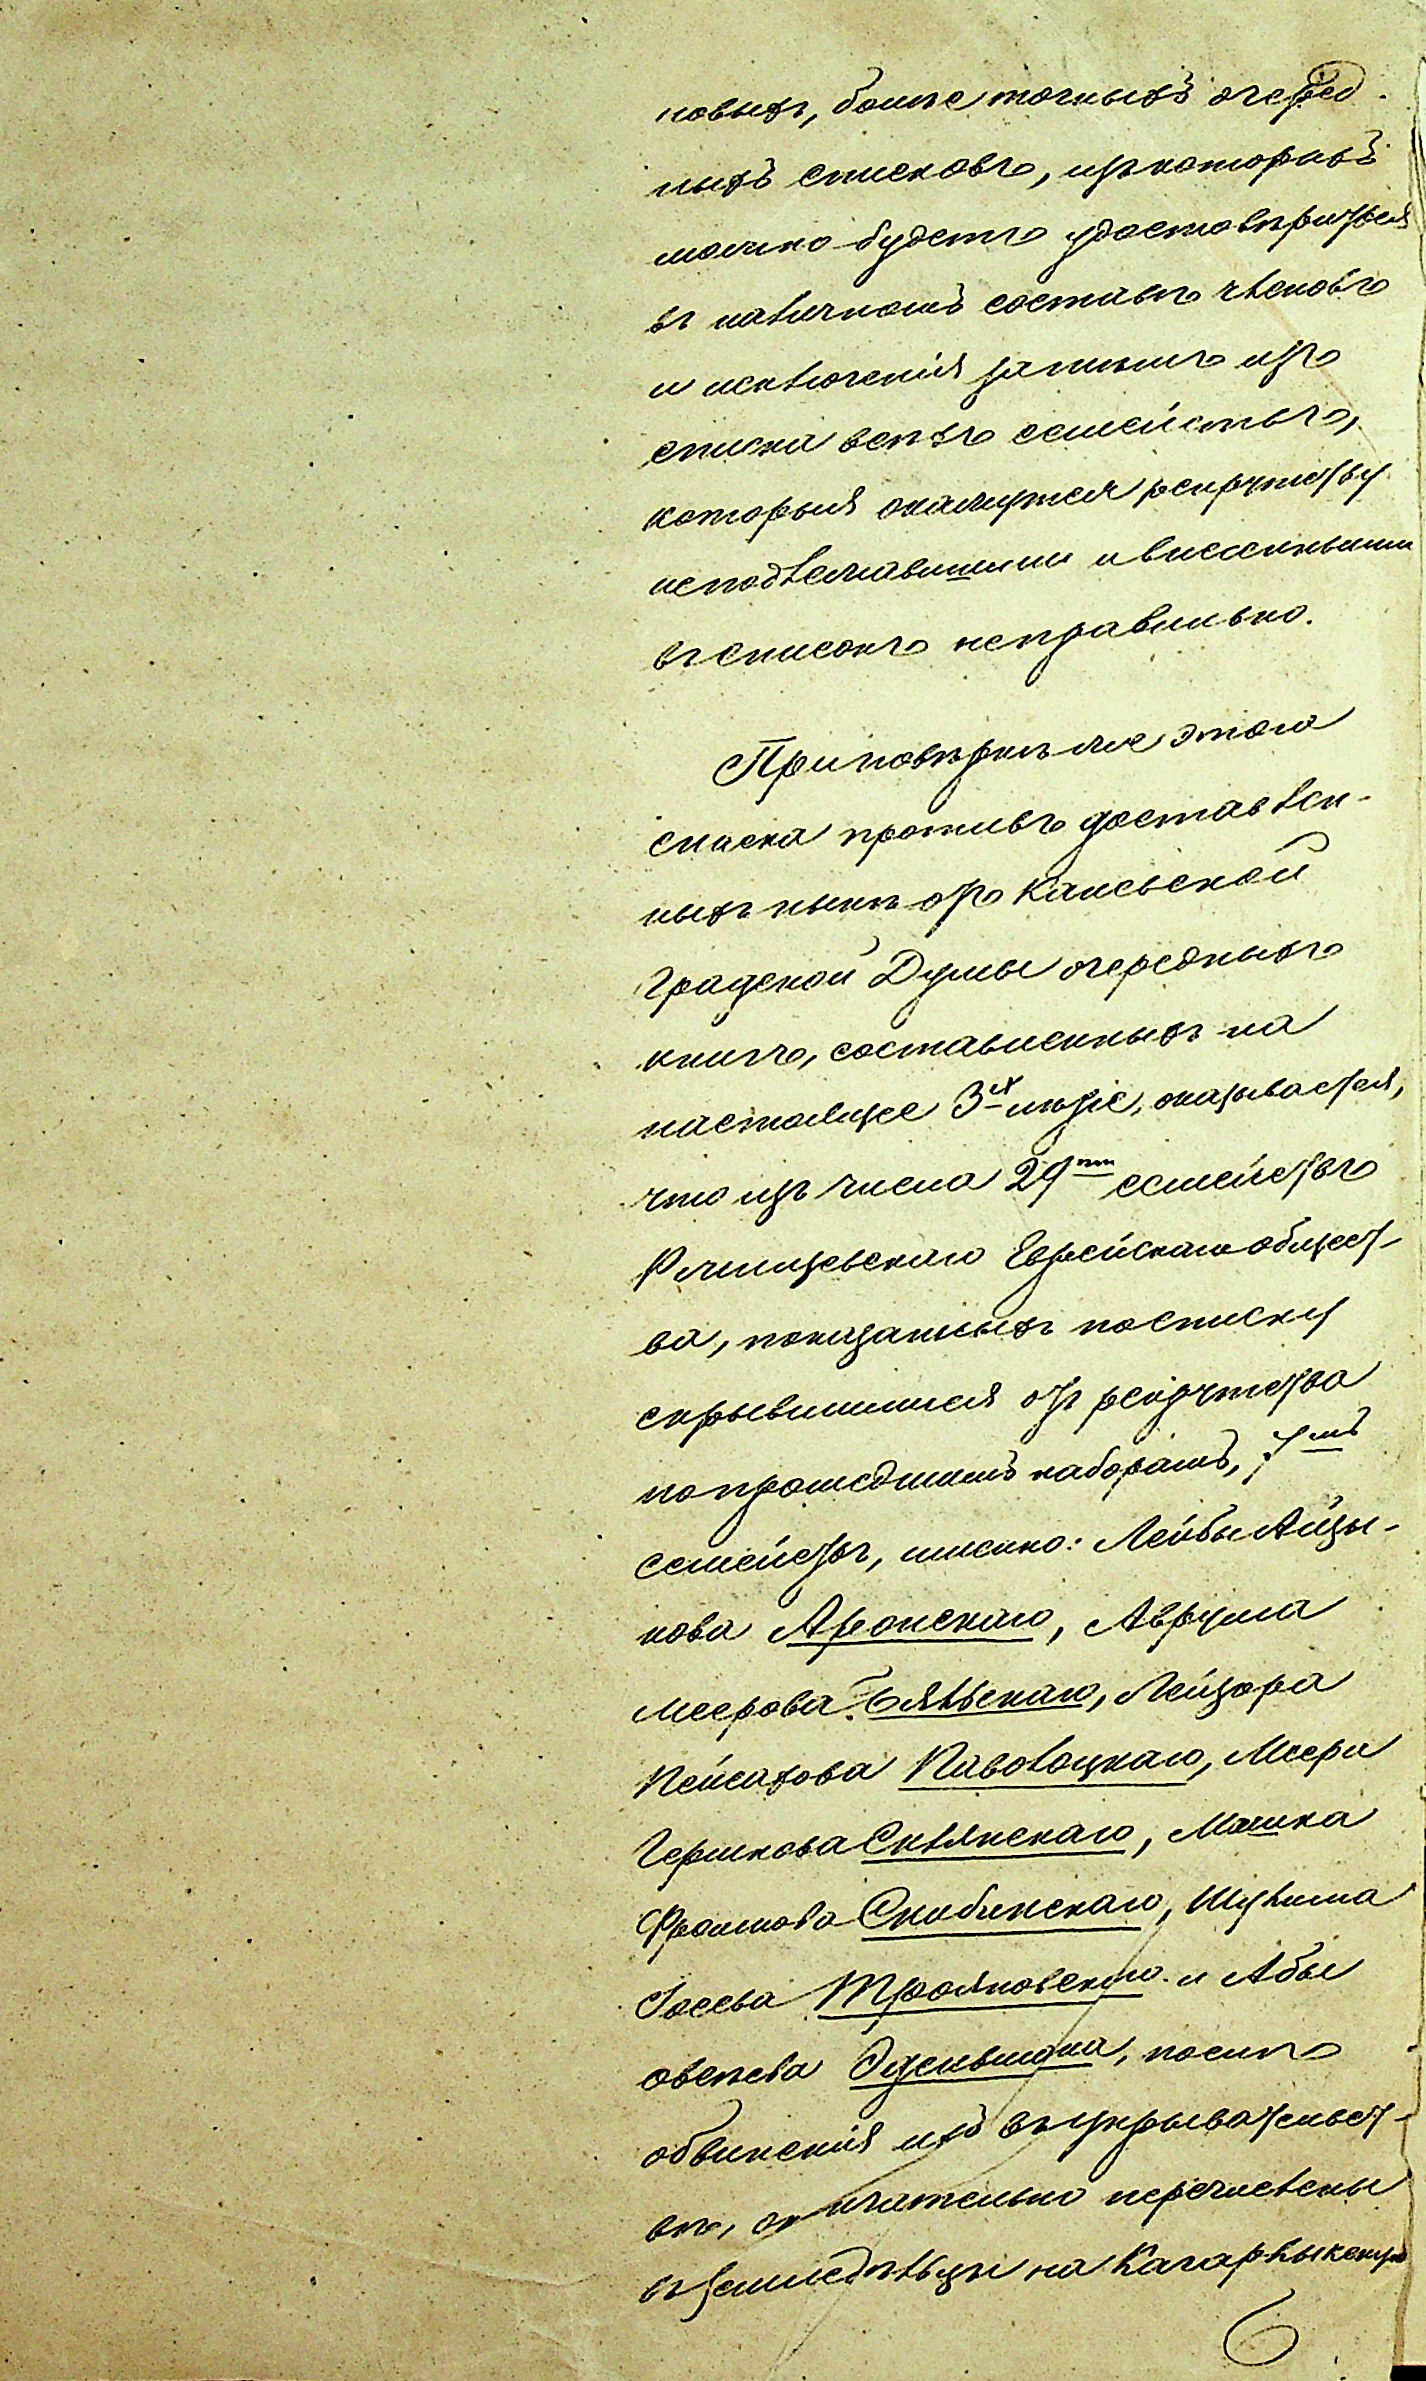 новыхъ, болѣе точныхъ очеред-
ныхъ списковъ, изъ которыхъ
можно будетъ удостовѣриться
въ наличномъ составѣ членовъ
и исключенія затѣмъ изъ
списка всѣхъ семействъ,
которыя окажутся рекрутству
неподлежавшими и внесенными
въ списокъ неправильно.
При повѣркѣ же этого
списка противъ доставлен-
ныхъ нынѣ отъ Каневской
Градской Думы очередныхъ
книгъ, составленныхъ на
настоящее 3х лѣтіе, оказывается,
что изъ числа 29ти семействъ
Ржищевскаго Еврейскаго общест-
ва, показанныхъ по списку
скрывшимися отъ рекрутства
по прошедшимъ наборамъ, 7мь
семействъ, именно: Лейбы Айзы-
кова Аронскаго, Аврума
Меерова Бяльскаго, Лейзора
Пейсахова Паволоцкаго, Меера
Гершкова Склянскаго, Мошка
Фроимова Скибинскаго, Шулима
Іосева Трояновскаго и Абы
Овсѣева Эдельмана, послѣ
обвиненія ихъ въ укрывательст-
вѣ, окончательно перечислены
въ земледѣльцы на Кагарлыкскую